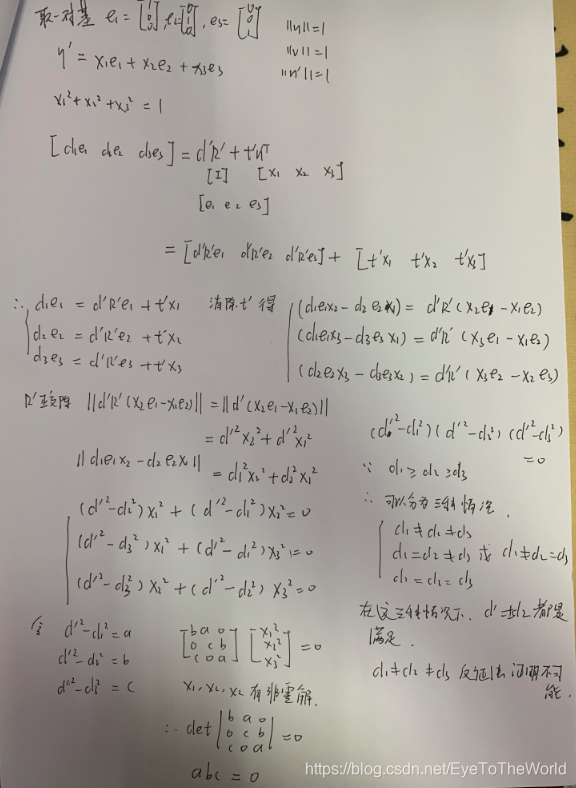 取一对基 e₁=[1 0 0], e₂=[0 1 0], e₃=[0 0 1]
||n||=1
||v||=1
||n'||=1
η' = x₁e₁ + x₂e₂ + x₃e₃
x₁²+x₂²+x₃² = 1
[d₁e₁ d₂e₂ d₃e₃] = d'R' + t'n'ᵀ
[I] [x₁ x₂ x₃]
[e₁ e₂ e₃]
= [d'R'e₁ d'R'e₂ d'R'e₃] + [t'x₁ t'x₂ t'x₃]
∴ { d₁e₁ = d'R'e₁ + t'x₁
d₂e₂ = d'R'e₂ + t'x₂
d₃e₃ = d'R'e₃ + t'x₃
消除t' 得
(d₁e₁x₂ - d₂e₂x₁) = d'R'(x₂e₁ - x₁e₂)
(d₁e₁x₃ - d₃e₃x₁) = d'R'(x₃e₁ - x₁e₂)
(d₂e₂x₃ - d₃e₃x₂) = d'R'(x₃e₂ - x₂e₃)
R'正交阵 ||d'R'(x₂e₁-x₁e₂)|| = ||d'(x₂e₁-x₁e₂)||
= d'²x₂² + d'²x₁²
||d₁e₁x₂ - d₂e₂x₁|| = d₁²x₂² + d₂²x₁²
{ (d'²-d₂²)x₁² + (d'²-d₁²)x₂² = 0
(d'²-d₃²)x₁² + (d'²-d₁²)x₃² = 0
(d'²-d₃²)x₂² + (d'²-d₂²)x₃² = 0
令 d'²-d₁² = a
d'²-d₂² = b
d'²-d₃² = c
[b a 0
0 c b
c 0 a] [x₁²
x₂²
x₃²] = 0
x₁, x₂, x₂ 有非零解.
∴ det |b a 0
0 c b
c 0 a| = 0
abc = 0
(d'²-d₁²)(d'²-d₂²)(d'²-d₃²)
= 0
∵ d₁≥d₂≥d₃
∴ 可以分为三种情况.
{ d₁≠d₂≠d₃
d₁=d₂≠d₃ 或 d₁≠d₂=d₃
d₁=d₂=d₃
在这三种情况下, d'=±d₂ 都是
满足.
d₁≠d₂≠d₃ 反证法 证明不可
能.
https://blog.csdn.net/EyeToTheWorld